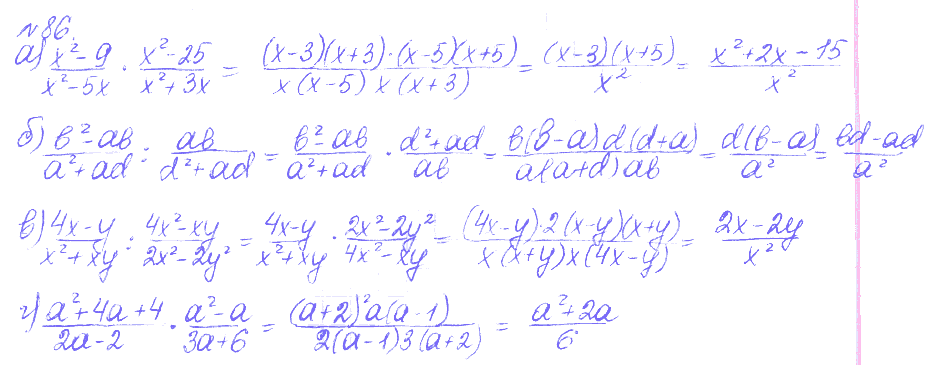 №86.
а) (x²-9)/(x²-5x) · (x²-25)/(x²+3x) = ((x-3)(x+3)·(x-5)(x+5))/(x(x-5)x(x+3)) = ((x-3)(x+5))/x² = (x²+2x-15)/x²
б) (b²-ab)/(a²+ad) : ab/(d²+ad) = (b²-ab)/(a²+ad) · (d²+ad)/ab = (b(b-a)d(d+a))/(a(a+d)ab) = (d(b-a))/a² = (bd-ad)/a²
в) (4x-y)/(x²+xy) : (4x²-xy)/(2x²-2y²) = (4x-y)/(x²+xy) · (2x²-2y²)/(4x²-xy) = ((4x-y)·2(x-y)(x+y))/(x(x+y)x(4x-y)) = (2x-2y)/x²
г) (a²+4a+4)/(2a-2) · (a²-a)/(3a+6) = ((a+2)²a(a-1))/(2(a-1)3(a+2)) = (a²+2a)/6